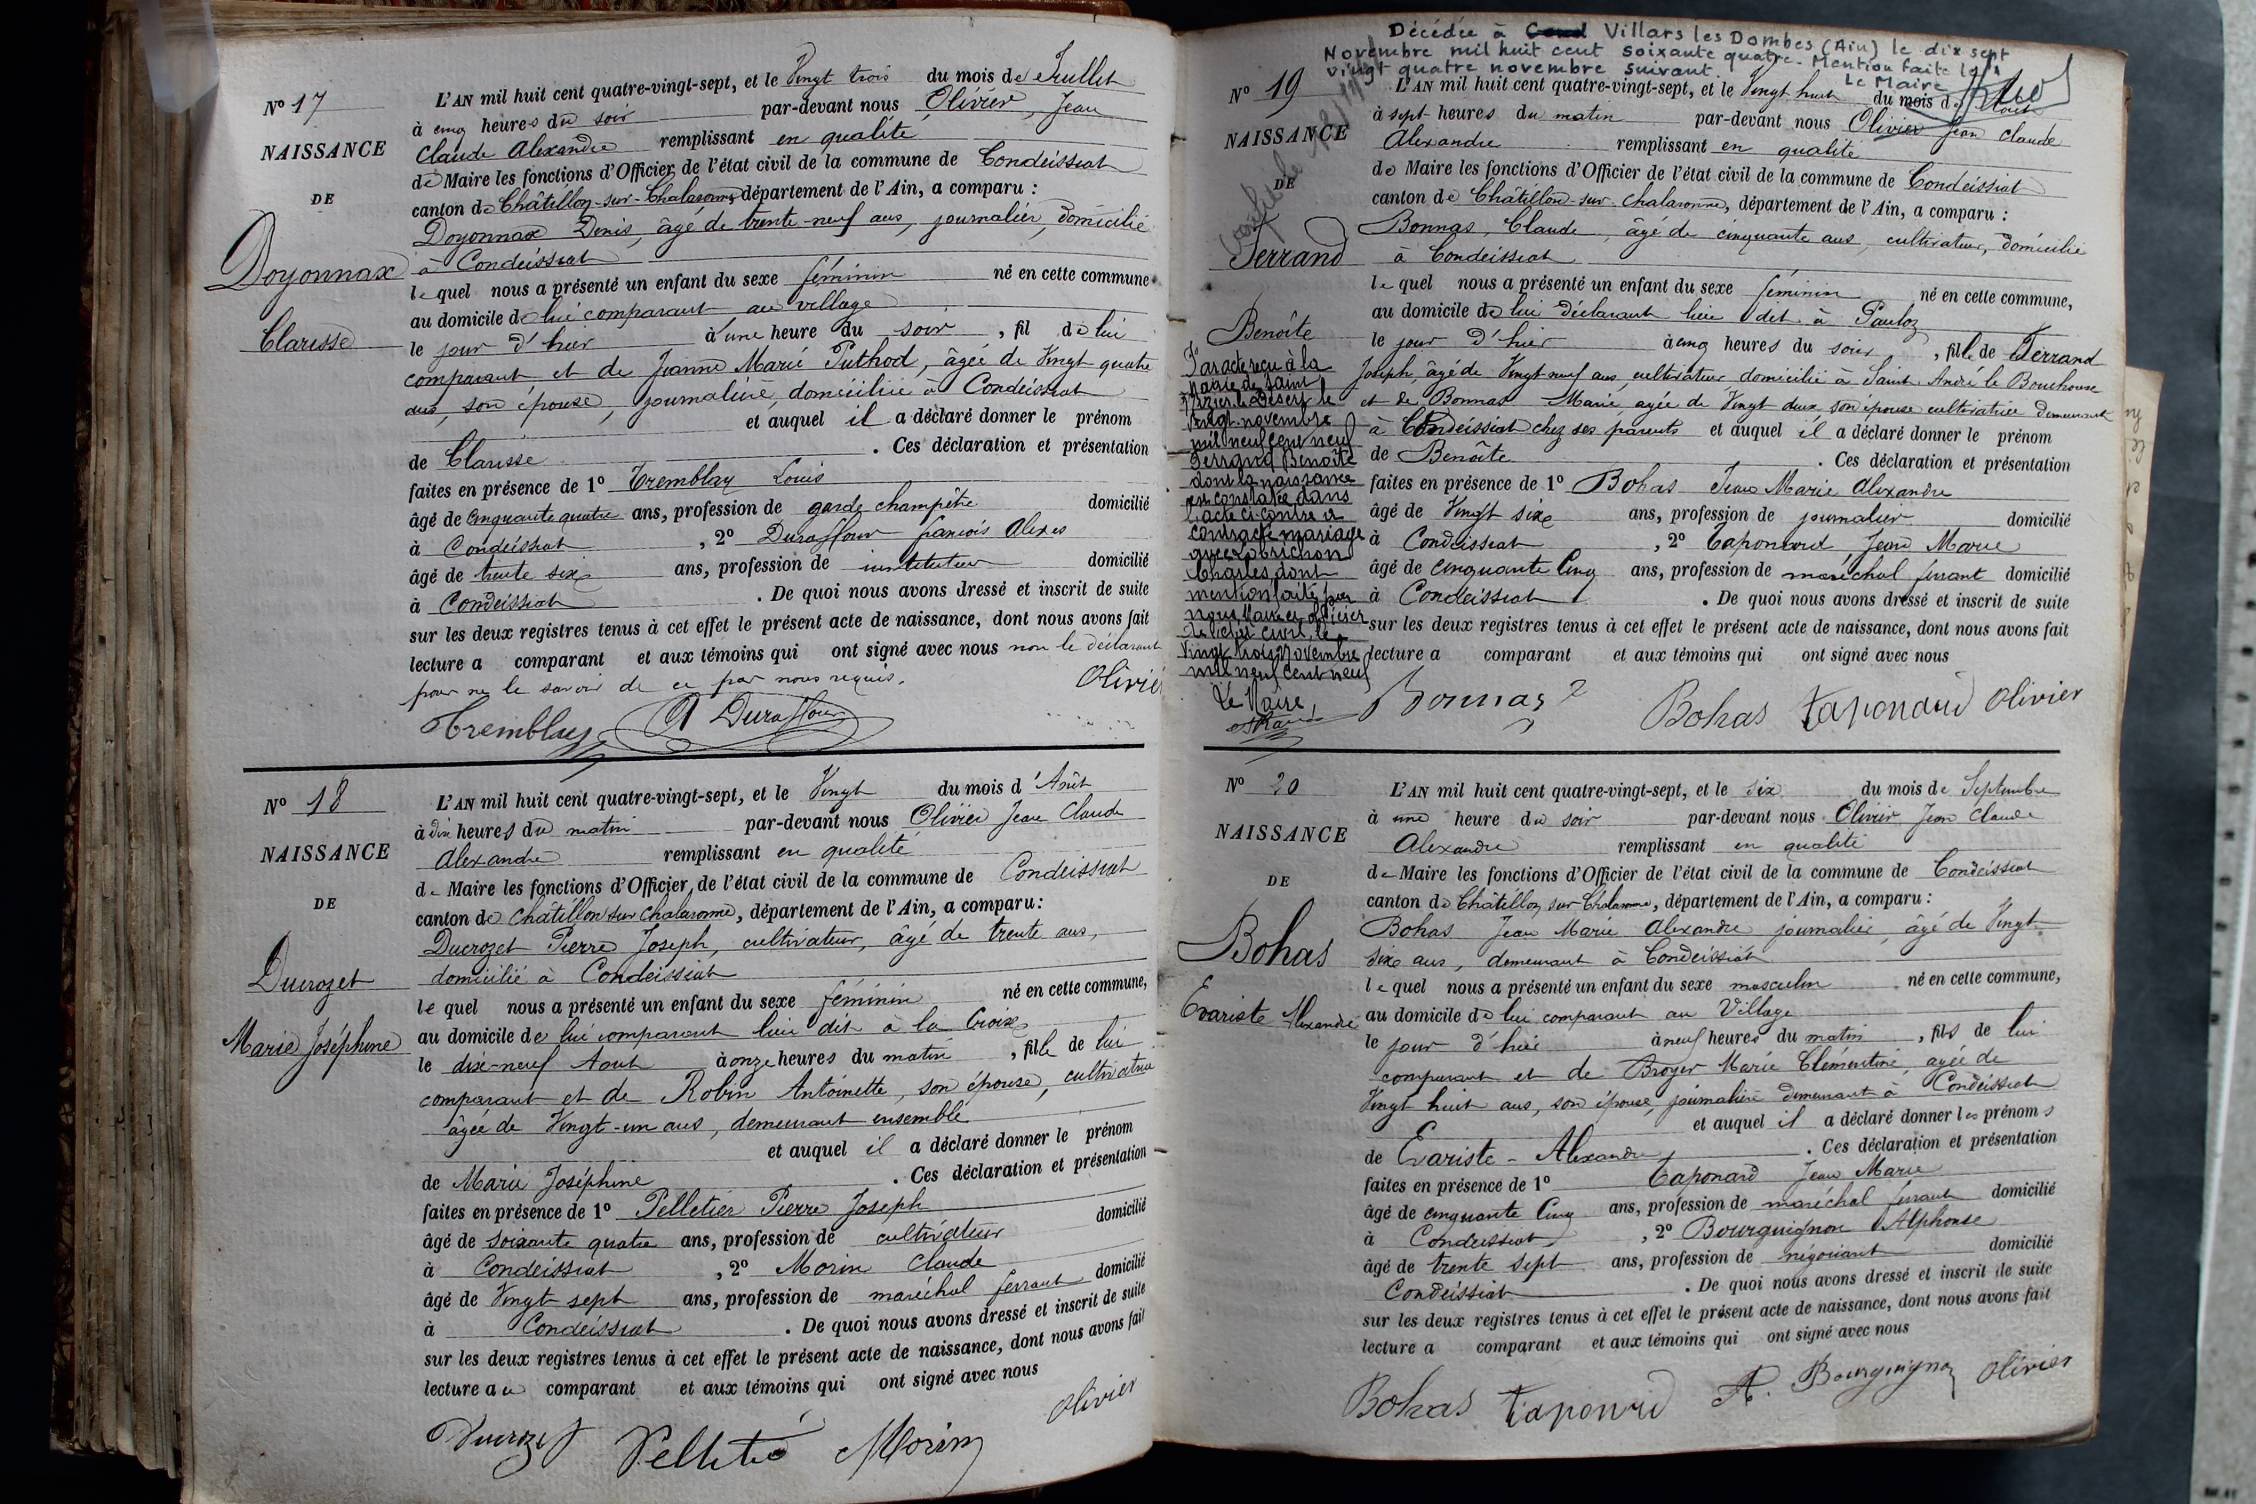 N° 17
NAISSANCE
DE
Doyonnax
Clarisse
L'AN mil huit cent quatre-vingt-sept, et le Vingt trois du mois de Juillet
à cinq heures du soir par-devant nous Olivier, Jean
Claude Alexandre remplissant en qualité
de Maire les fonctions d'Officier de l'état civil de la commune de Condeissiat
canton de Châtillon-sur-Chalaronne, département de l'Ain, a comparu :
Doyonnax Denis, âgé de trente-neuf ans, journalier, domicilié
à Condeissiat
lequel nous a présenté un enfant du sexe féminin né en cette commune
au domicile de lui comparant au village
le jour d'hier à une heure du soir, fil de lui
comparant et de Jeanne Marie Puthod, âgée de Vingt quatre
ans, son épouse, journalière domiciliée à Condeissiat
et auquel il a déclaré donner le prénom
de Clarisse. Ces déclaration et présentation
faites en présence de 1° Tremblay Louis
âgé de cinquante quatre ans, profession de garde champêtre domicilié
à Condeissiat, 2° Duraffour françois Alexis
âgé de trente six ans, profession de instituteur domicilié
à Condeissiat. De quoi nous avons dressé et inscrit de suite
sur les deux registres tenus à cet effet le présent acte de naissance, dont nous avons fait
lecture a comparant et aux témoins qui ont signé avec nous non le déclarant
pour ne le savoir de ce par nous requis.
Olivier
Tremblay A Duraffour
N° 18
NAISSANCE
DE
Ducrozet
Marie Joséphine
L'AN mil huit cent quatre-vingt-sept, et le Vingt du mois d'Août
à dix heures du matin par-devant nous Olivier Jean Claude
Alexandre remplissant en qualité
de Maire les fonctions d'Officier de l'état civil de la commune de Condeissiat
canton de Châtillon sur Chalaronne, département de l'Ain, a comparu :
Ducrozet Pierre Joseph, cultivateur, âgé de trente ans,
domicilié à Condeissiat
lequel nous a présenté un enfant du sexe féminin né en cette commune,
au domicile de lui comparant lieu dit à la Croix
le dix-neuf Aout à onze heures du matin, fille de lui
comparant et de Robin Antoinette, son épouse, cultivatrice
âgée de Vingt-un ans, demeurant ensemble
et auquel il a déclaré donner le prénom
de Marie Joséphine. Ces déclaration et présentation
faites en présence de 1° Pelletier Pierre Joseph
âgé de soixante quatre ans, profession de cultivateur domicilié
à Condeissiat, 2° Morin Claude
âgé de Vingt sept ans, profession de maréchal ferrant domicilié
à Condeissiat. De quoi nous avons dressé et inscrit de suite
sur les deux registres tenus à cet effet le présent acte de naissance, dont nous avons fait
lecture au comparant et aux témoins qui ont signé avec nous
Olivier
Ducrozet Pelletié Morin
Décédée à Villars les Dombes (Ain) le dix sept
Novembre mil huit cent soixante quatre. Mention faite le
vingt quatre novembre suivant.
Le Maire
N° 19
NAISSANCE
DE
Ferrand
Benoîte
L'AN mil huit cent quatre-vingt-sept, et le Vingt huit du mois d'Août
à sept heures du matin par-devant nous Olivier Jean Claude
Alexandre remplissant en qualité
de Maire les fonctions d'Officier de l'état civil de la commune de Condeissiat
canton de Châtillon-sur-Chalaronne, département de l'Ain, a comparu :
Bonnas, Claude, âgé de cinquante ans, cultivateur, domicilié
à Condeissiat
lequel nous a présenté un enfant du sexe féminin né en cette commune,
au domicile de lui déclarant lieu dit à Pauloz
le jour d'hier à cinq heures du soir, fille de Ferrand
Joseph, âgé de Vingt neuf ans, cultivateur domicilié à Saint André le Bouchoux
et de Bonnas Marie, agée de Vingt deux, son épouse cultivatrice demeurant
à Condeissiat chez ses parents et auquel il a déclaré donner le prénom
de Benoîte. Ces déclaration et présentation
faites en présence de 1° Bohas Jean Marie Alexandre
âgé de Vingt six ans, profession de journalier domicilié
à Condeissiat, 2° Taponard Jean Marie
âgé de cinquante Cinq ans, profession de maréchal ferrant domicilié
à Condeissiat. De quoi nous avons dressé et inscrit de suite
sur les deux registres tenus à cet effet le présent acte de naissance, dont nous avons fait
lecture a comparant et aux témoins qui ont signé avec nous
Par acte reçu à la
mairie de Saint
le Désert le
vingt novembre
mil neuf cent neuf
Ferrand Benoîte
dont la naissance
est constatée dans
l'acte ci-contre a
contracté mariage
avec Cobrichon
Charles, dont
mention faite par
nous Maire officier
de l'état civil, le
Vingt trois Novembre
mil neuf cent neuf
Le Maire,
Bonnas Bohas Taponard Olivier
N° 20
NAISSANCE
DE
Bohas
Evariste Alexandre
L'AN mil huit cent quatre-vingt-sept, et le six du mois de Septembre
à une heure du soir par-devant nous Olivier Jean Claude
Alexandre remplissant en qualité
de Maire les fonctions d'Officier de l'état civil de la commune de Condeissiat
canton de Châtillon sur Chalaronne, département de l'Ain, a comparu :
Bohas Jean Marie Alexandre journalier, âgé de Vingt
six ans, demeurant à Condeissiat
lequel nous a présenté un enfant du sexe masculin né en cette commune,
au domicile de lui comparant au Village
le jour d'hier à neuf heures du matin, fils de lui
comparant et de Broyer Marie Clémentine, agée de
Vingt huit ans, son épouse, journalière demeurant à Condeissiat
et auquel il a déclaré donner les prénoms
de Evariste - Alexandre. Ces déclaration et présentation
faites en présence de 1° Taponard Jean Marie
âgé de cinquante Cinq ans, profession de maréchal ferrant domicilié
à Condeissiat, 2° Bourguignon Alphonse
âgé de trente sept ans, profession de négociant domicilié
Condeissiat. De quoi nous avons dressé et inscrit de suite
sur les deux registres tenus à cet effet le présent acte de naissance, dont nous avons fait
lecture a comparant et aux témoins qui ont signé avec nous
Bohas Taponard A. Bourguignon Olivier